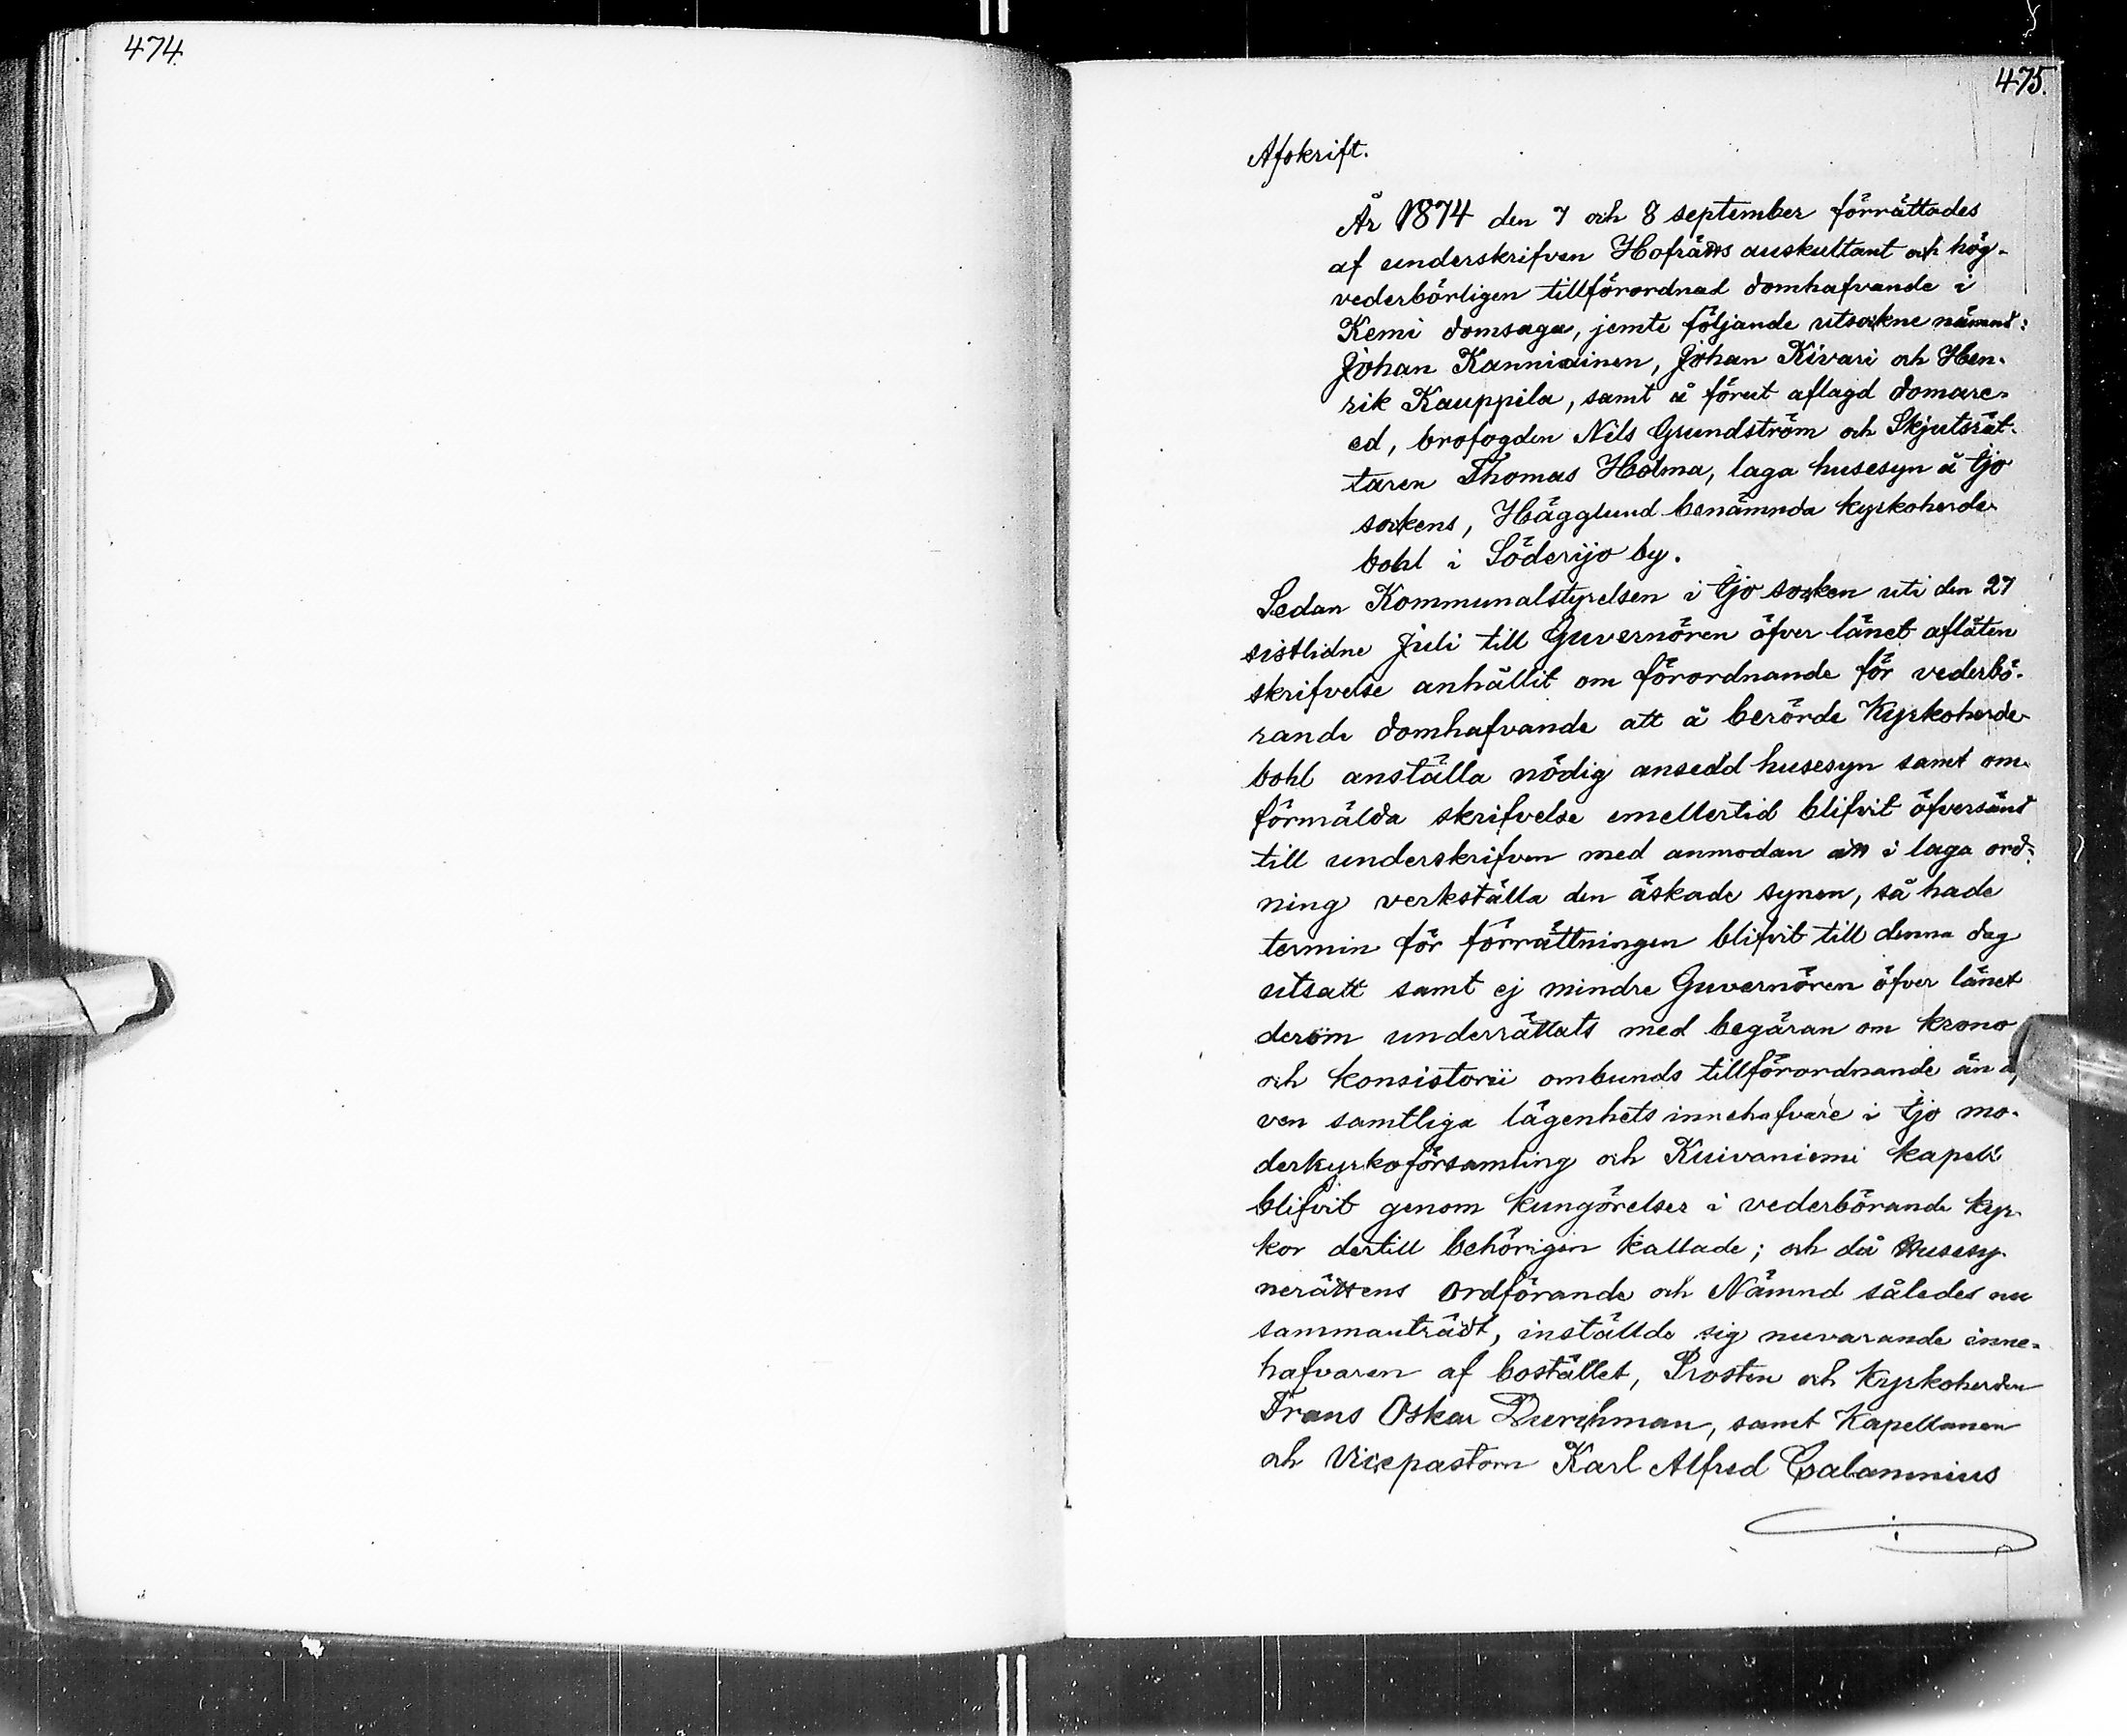 474.
475.
Afskrift.
År 1874 den 7 och 8 september förrättades
af underskrifven Hofrätts auskultant och hög-
vederbörligen tillförordnad domhafvande i
Kemi domsaga, jemte följande utsockne nämnd:
Johan Kanniainen, Johan Kivari och Hen-
rik Kauppila, samt å förut aflagd domare-
ed, brofogden Nils Grundström och Skjutsrät-
taren Thomas Holma, laga husesyn å Ijo
sockens, Hägglund benämnda kyrkoherde-
bohl i Söderijo by.
Sedan Kommunalstyrelsen i Ijo socken uti den 27
sistlidne Juli till Guvernören öfver länet aflåten
skrifvelse anhållit om förordnande för vederbö-
rande domhafvande att å berörde Kyrkoherde-
bohl anställa nödig ansedd husesyn samt om-
förmälda skrifvelse emellertid blifvit öfversänd
till underskrifven med anmodan att i laga ord-
ning verkställa den äskade synen, så hade
termin för förrättningen blifvit till denna dag
utsatt samt ej mindre Guvernören öfver länet
derom underrättats med begäran om krono
och konsistorii ombunds tillförordnande än ä
ven samtliga lägenhets innehafvare i Ijo mo-
derkyrkoförsamling och Kuivaniemi kapell
blifvit genom kungörelser i vederbörande kyr-
kor dertill behörigen kallade; och då Husesy-
nerättens Ordförande och Nämnd således nu
sammanträdt, inställde sig nuvarande inne-
hafvaren af bostället, Prosten och Kyrkoherden
Frans Oskar Durchman, samt Kapellanen
och Vicepastorn Karl Alfred Calamnius